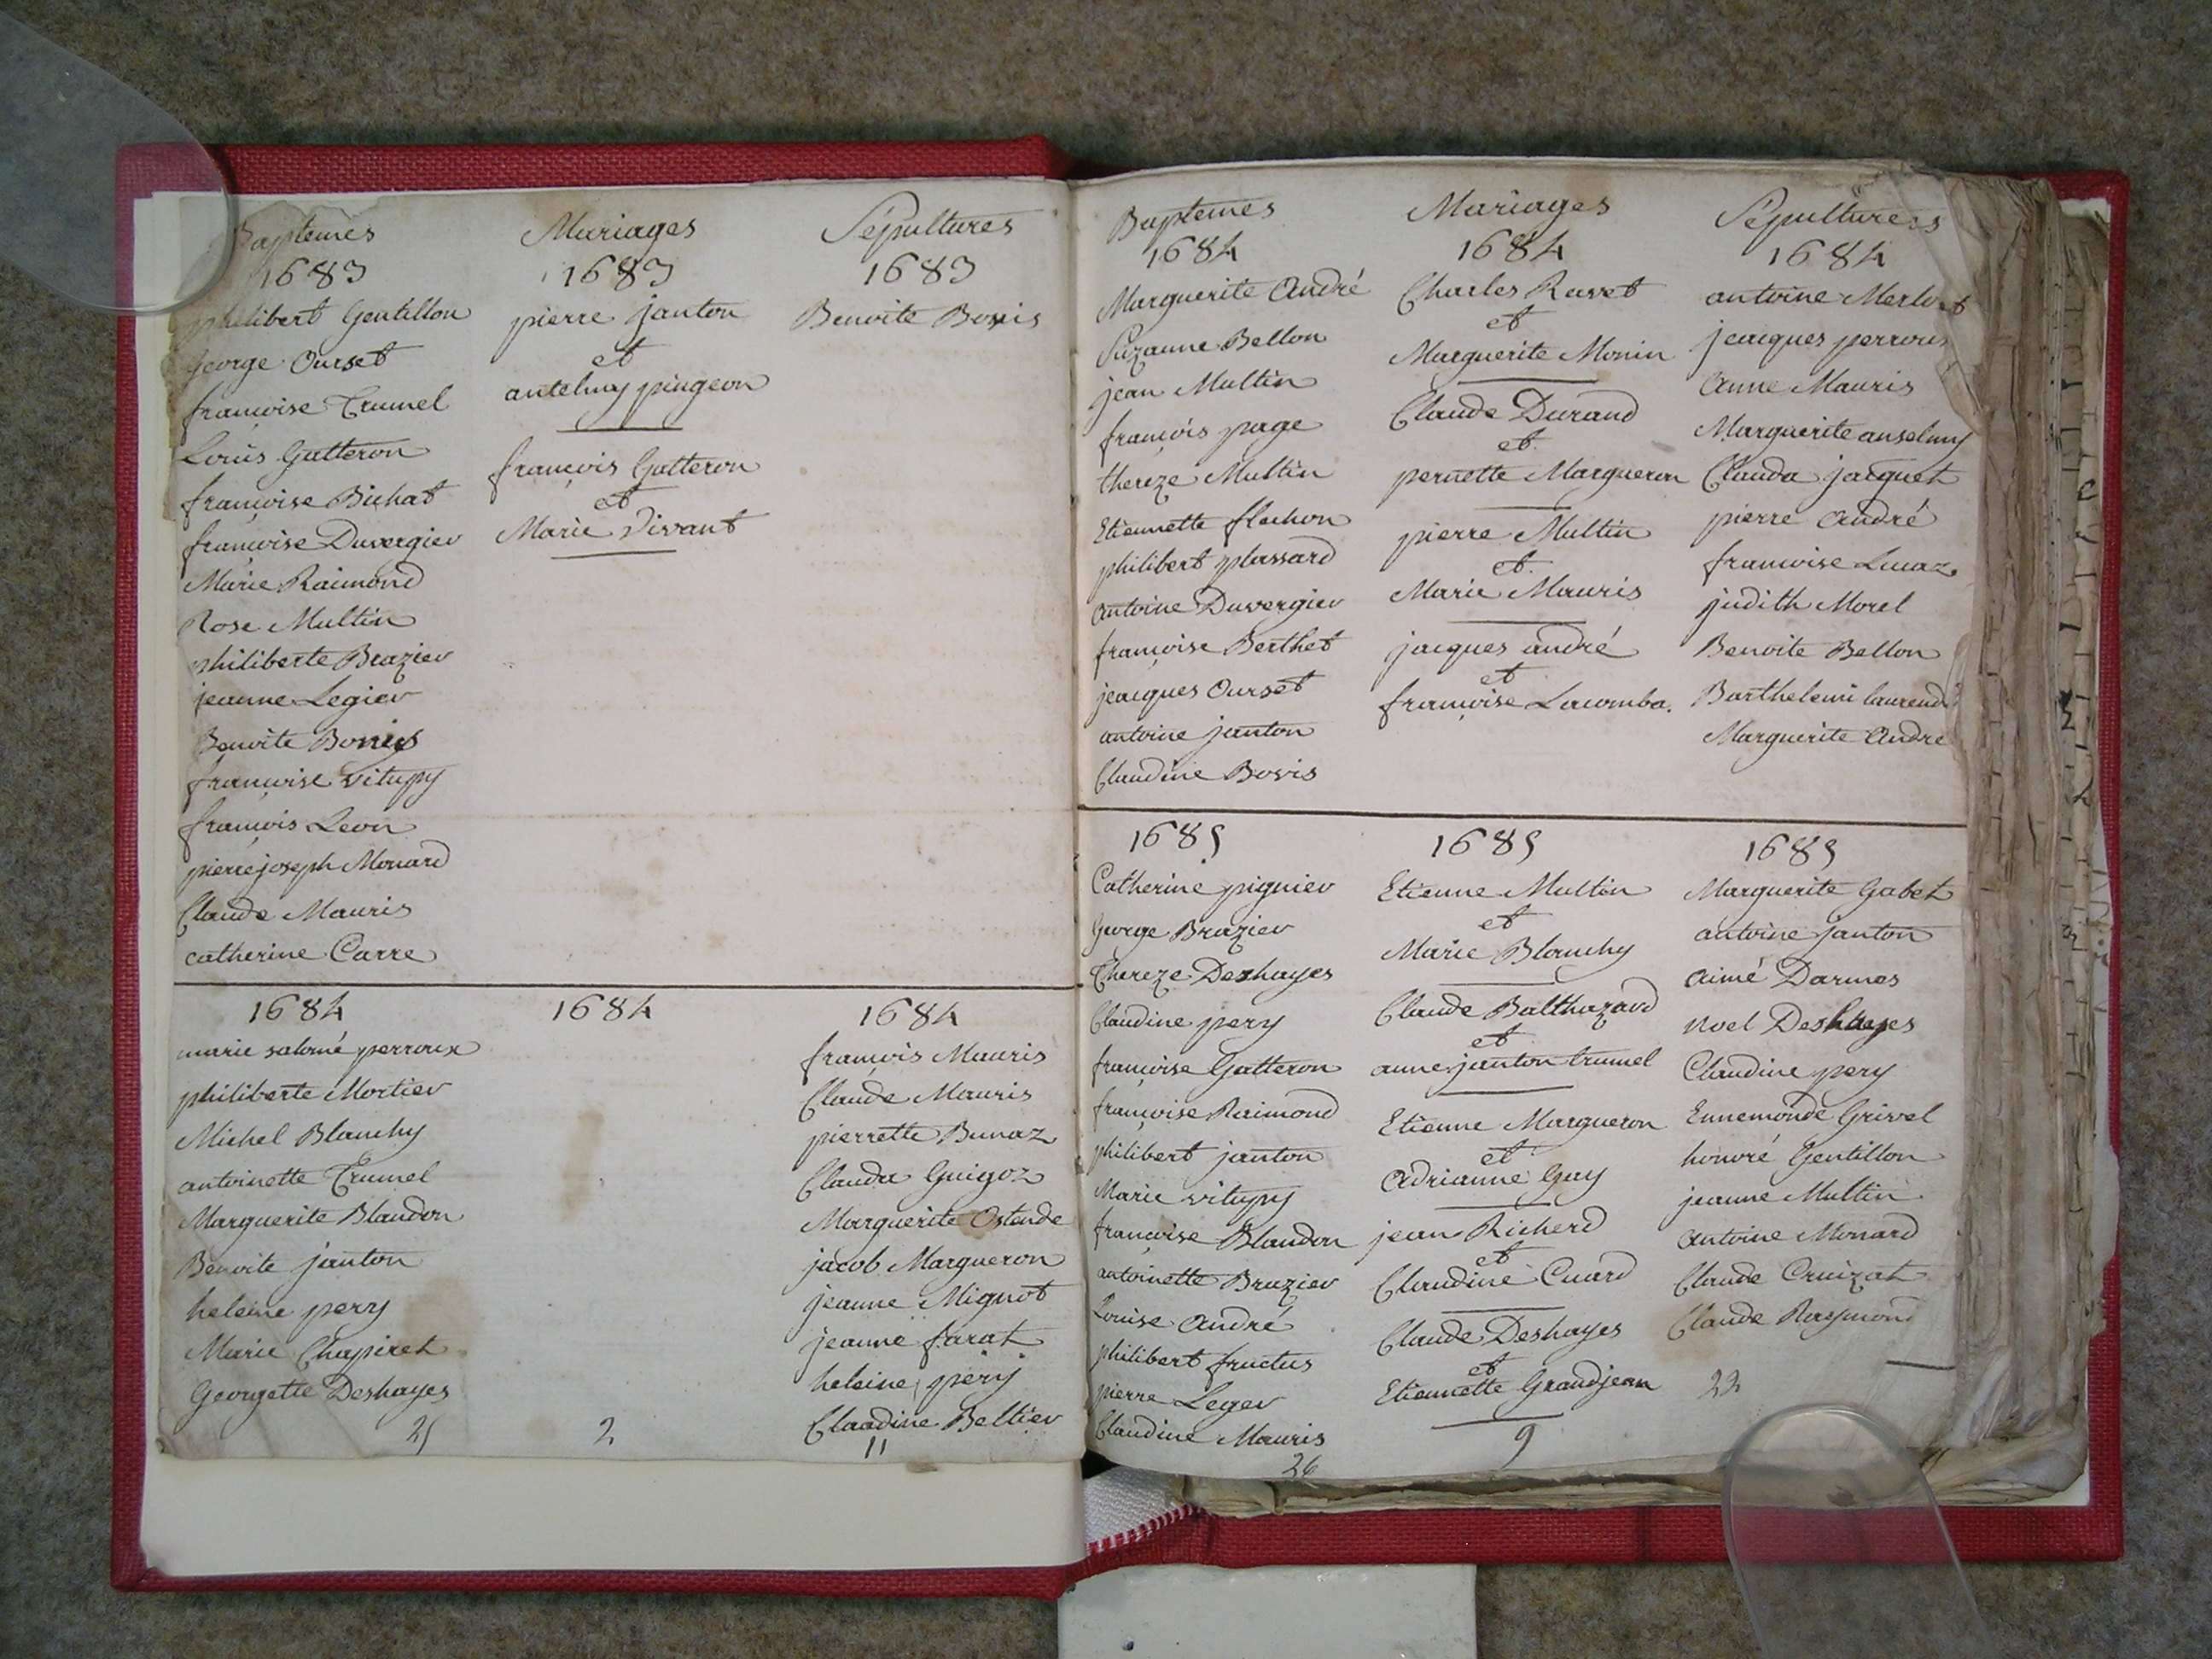 Baptemes
1683
philibert Gentillon
George Ourset
françoise Trumel
Louis Gatteron
françoise Bichat
françoise Duvergier
Marie Raimond
Rose Multin
philiberte Brazier
jeanne Legier
Benoite
françoise vitupy
françois Leon
pierre joseph Monard
Claude Mauris
catherine Carre
1684
marie salomé perroux
philiberte Mortier
Michel Blanchy
antoinette Trumel
Marguerite Blandon
Benoite janton
heleine pery
Marie Chapiret
Georgette Deshayes
25
Mariages
1683
pierre janton
et
antelmy pingeon
françois Gatteron
et
Marie Vivant
1684
2
Sépultures
1683
Benoite
1684
françois Mauris
Claude Mauris
pierrette Bunaz
Clauda Guigoz
Marguerite Ostende
jacob Margueron
jeanne Mignot
jeanne farat
heleine pery
Claudine Beltier
11
Baptemes
1684
Marguerite André
Suzanne Bellon
jean Multin
françois page
thereze Multin
Etiennette flochon
philibert plassard
antoine Duvergier
françoise Berthet
jacques Ourset
antoine janton
Claudine Bovis
1685
Catherine pignier
George Brazier
Thereze Deshayes
Claudine pery
françoise Gatteron
françoise Raimond
philibert janton
Marie vitupy
françoise Blandon
antoinette Brazier
Louise André
philibert fructus
pierre Leger
Claudine Mauris
26
Mariages
1684
Charles Ravet
et
Marguerite Monin
Claude Durand
et
pernette Margueron
pierre Multin
et
Marie Mauris
jacques andré
et
françoise Lacomba.
1685
Etienne Multin
et
Marie Blanchy
Claude Balthazard
et
anne janton trumel
Etienne Margueron
et
Adrianne Guy
jean Richerd
et
Claudine Cuard
Claude Deshayes
et
Etiennette Grandjean
9
Sépultures
1684
antoine Merlot
jacques perroux
Anne Mauris
Marguerite anselmy
Clauda jacquet
pierre André
francoise Lucaz
judith Morel
Benoite Bellon
Barthelemi laurend
Marguerite André
1685
Marguerite Gabet
antoine janton
Aimé Darmes
Noel Deshayes
Claudine pery
Ennemonde Grivel
honoré Gentillon
jeanne Multin
Antoine Monard
Claude Cruizat
Claude Raymond
22